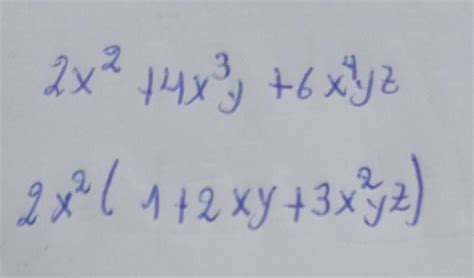 2x² + 4x³y + 6x⁴yz
2x² ( 1 + 2xy + 3x²yz)